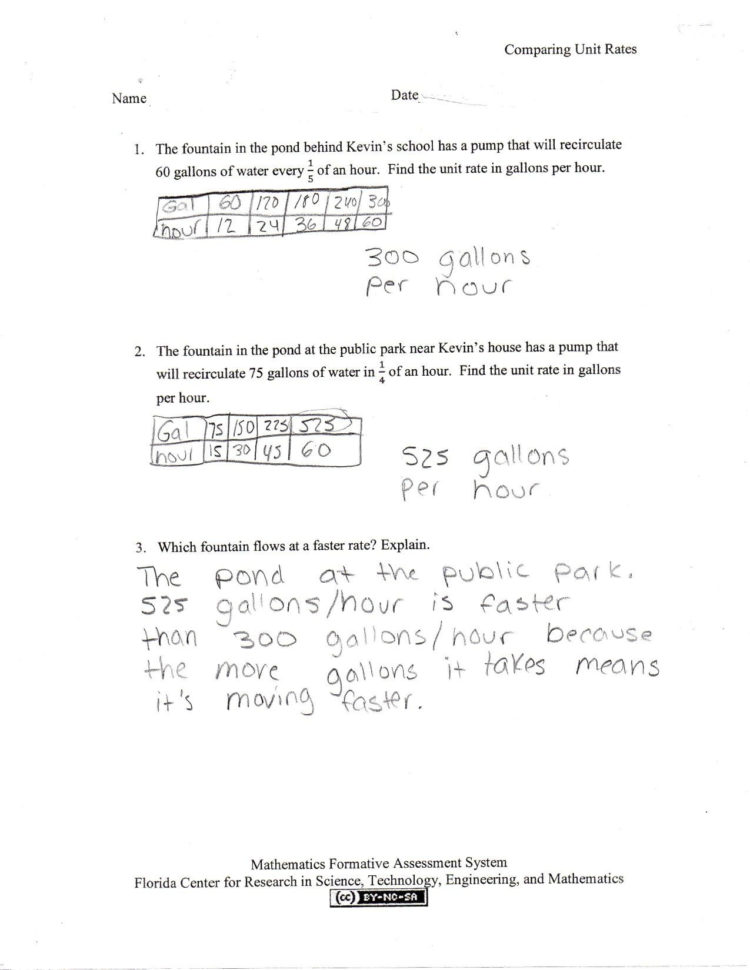 Comparing Unit Rates
Name
Date
1. The fountain in the pond behind Kevin's school has a pump that will recirculate
60 gallons of water every 1/5 of an hour. Find the unit rate in gallons per hour.
Gal 60 120 180 240 300
hour 12 24 36 48 60
300 gallons
per hour
2. The fountain in the pond at the public park near Kevin's house has a pump that
will recirculate 75 gallons of water in 1/4 of an hour. Find the unit rate in gallons
per hour.
Gal 75 150 225 525
hour 15 30 45 60
525 gallons
per hour
3. Which fountain flows at a faster rate? Explain.
The pond at the public park.
525 gallons/hour is faster
than 300 gallons/hour because
the more gallons it takes means
it's moving faster.
Mathematics Formative Assessment System
Florida Center for Research in Science, Technology, Engineering, and Mathematics
(cc) BY-NC-SA